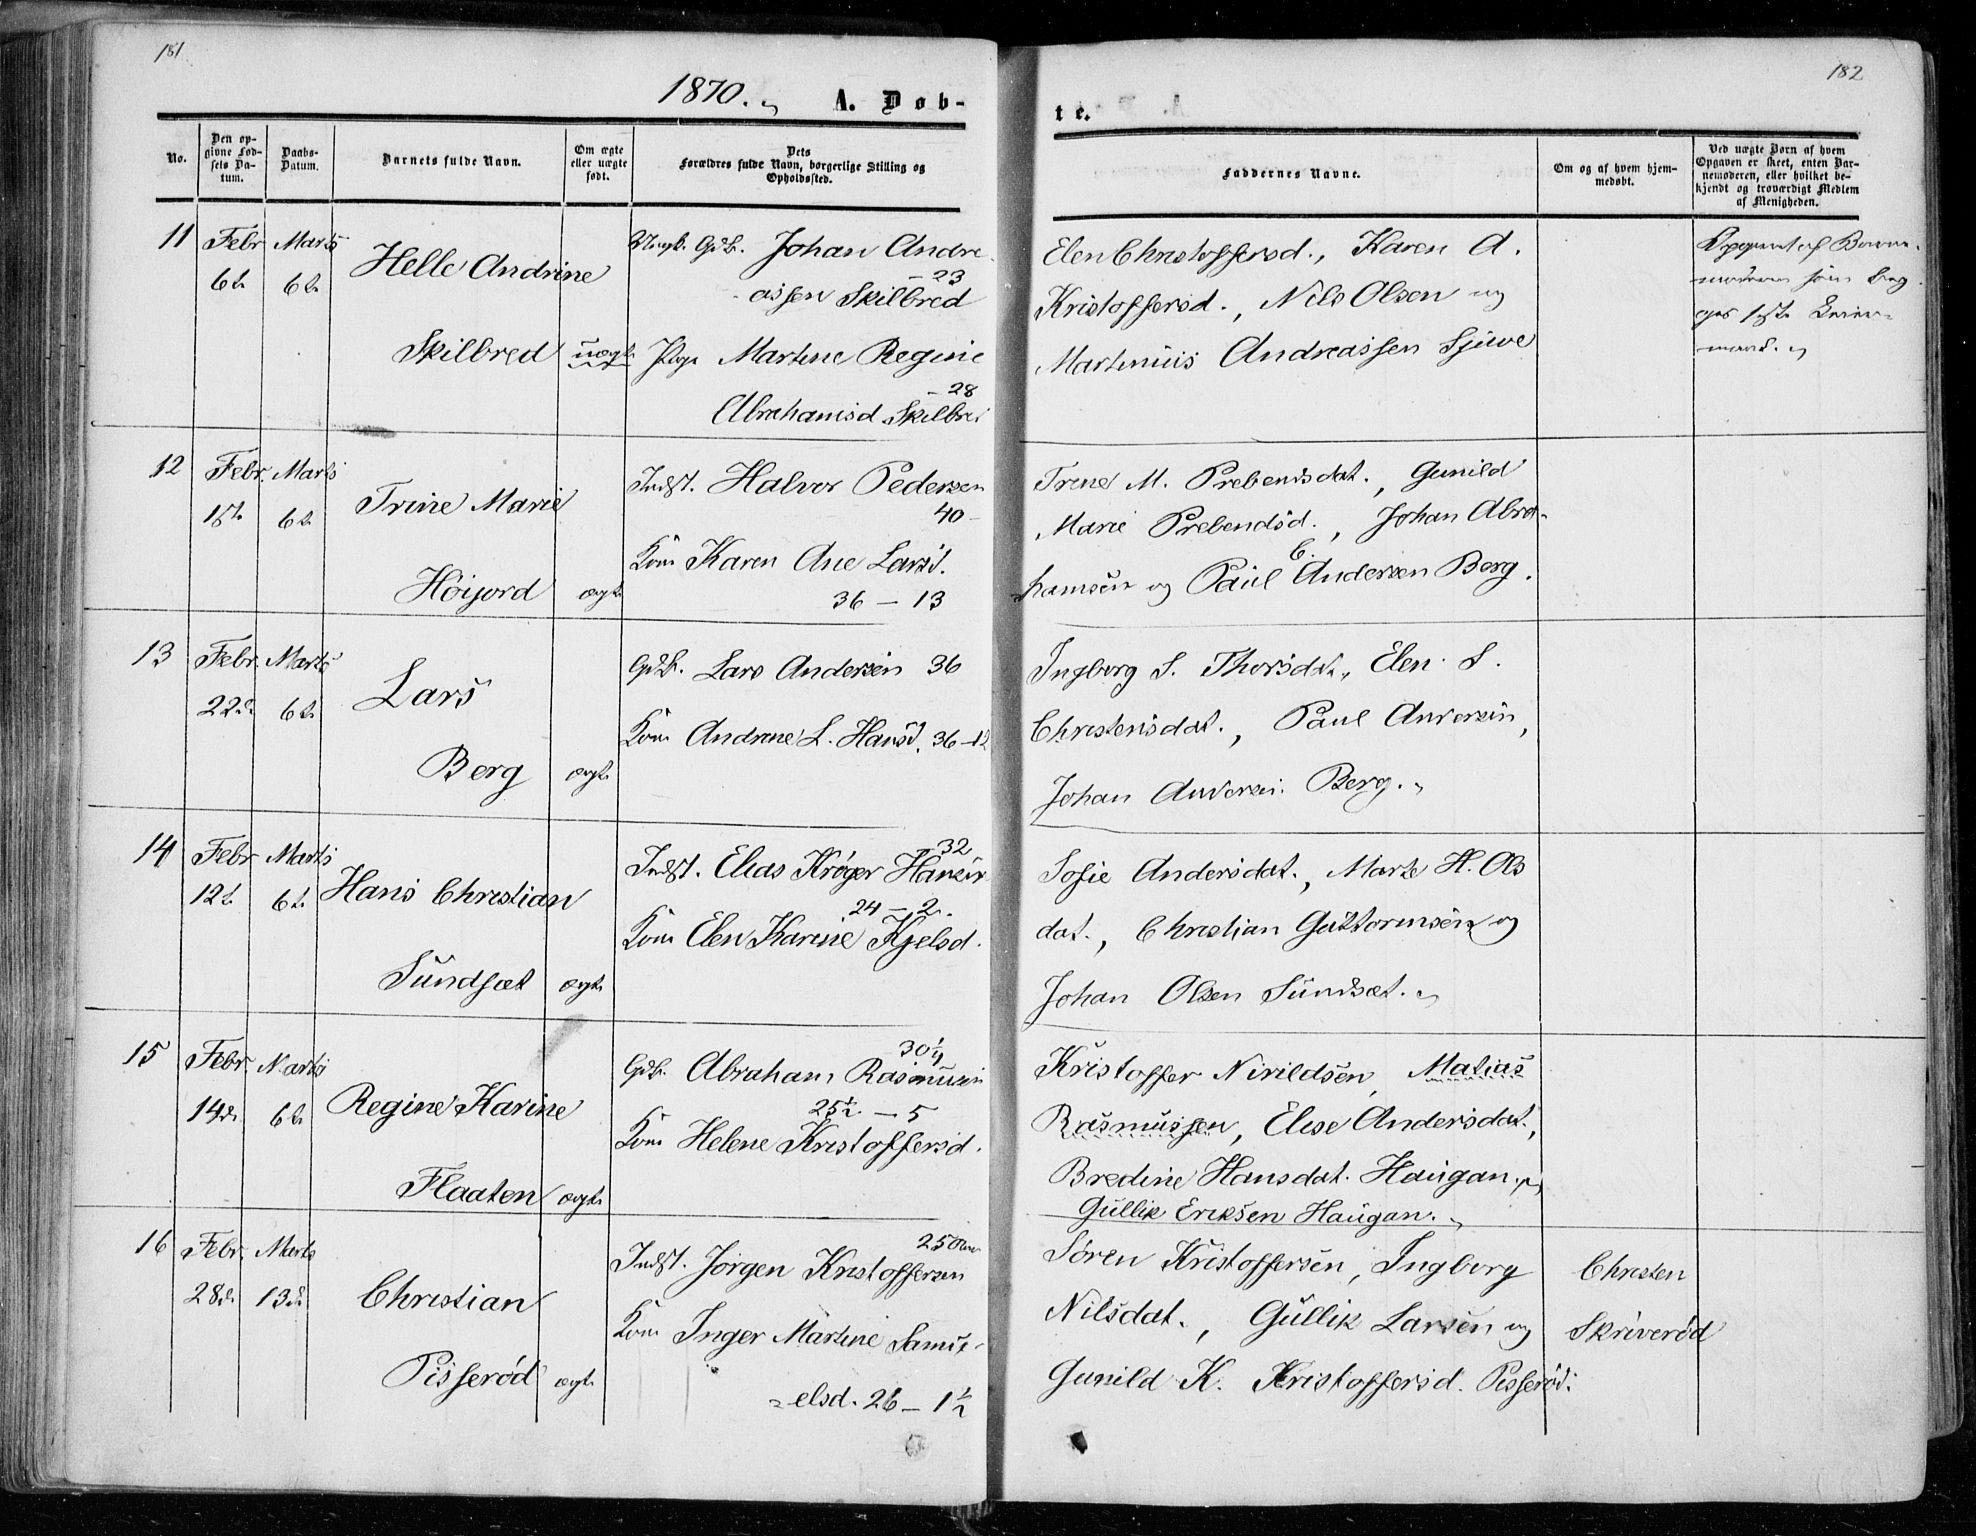 181
182
1870. A. Døb-
te.
No.
Den op-
givne Fød-
sels Da-
tum.
Daabs-
Datum.
Barnets fulde Navn.
Om ægte
eller uægte
født.
Dets
Forældres fulde Navn, borgerlige Stilling og
Opholdssted.
Faddernes Navne.
Om og af hvem hjem-
medøbt.
Ved uægte Børn af hvem
Opgaven er skeet, enten Bar-
nemoderen, eller hvilket be-
kjendt og troværdigt Medlem
af Menigheden.
11 Febr Marts Helle Andrine Ungk. Gdbr. Johan Andre
6te 6te assen Skilbred -23
Skilbred uægte Pige Martine Regine
Abrahamsd. Skilbred -28
Elen Christoffersd., Karen A.
Kristoffersd., Nils Olsen og
Martinius Andreassen
12 Febr. Marts Trine Marie Indst. Halvor Pedersen
1ste 6te 40 -
Kone Karen Ane Larsd.
Höijord ægte 36 - 13
Trene M. Prebensdat., Gunild
Marie Prebensd., Johan Abra-
hamsen og Paul C. Andersen Berg.
13 Febr. Marts Lars Gdbr. Lars Andersen 36
22de 6te Kone Andrine L. Hansd. 36-12
Berg ægte
Ingborg S. Thorsdat., Elen S.
Christensdat., Paul Andersen,
Johan Andersen Berg.
14 Febr Marts Hans Christian Indst. Elias Krøger Hansen 32
12te 6te Kone Elen Karine Kjelsd. 24-2.
Sundsæt ægte
Sofie Andersdat., Marte H. Ols
dat., Christian Guttormsen og
Johan Olsen Sundsæt.
15 Febr. Marts Regine Karine Gdbr. Abraham Rasmusen 30 1/4
14de 6te Kone Helene Kristoffersd. 25 1/2 - 5
Flaaten ægte
Kristoffer Nirildsen, Matias
Rasmussen, Elise Andersdat.,
Bredine Hansdat. Haugan
Gullik Eriksen Haugan.
16 Febr. Marts Christian Indst. Jörgen Kristoffersen 25
28de 13de Kone Inger Martine Samu-
Pisserød ægte elsd. 26 - 1 1/2
Sören Kristoffersen, Ingborg
Nilsdat., Gullik Larsen og
Gunild K. Kristoffersd. Pisserød.
Christen
Skriverød